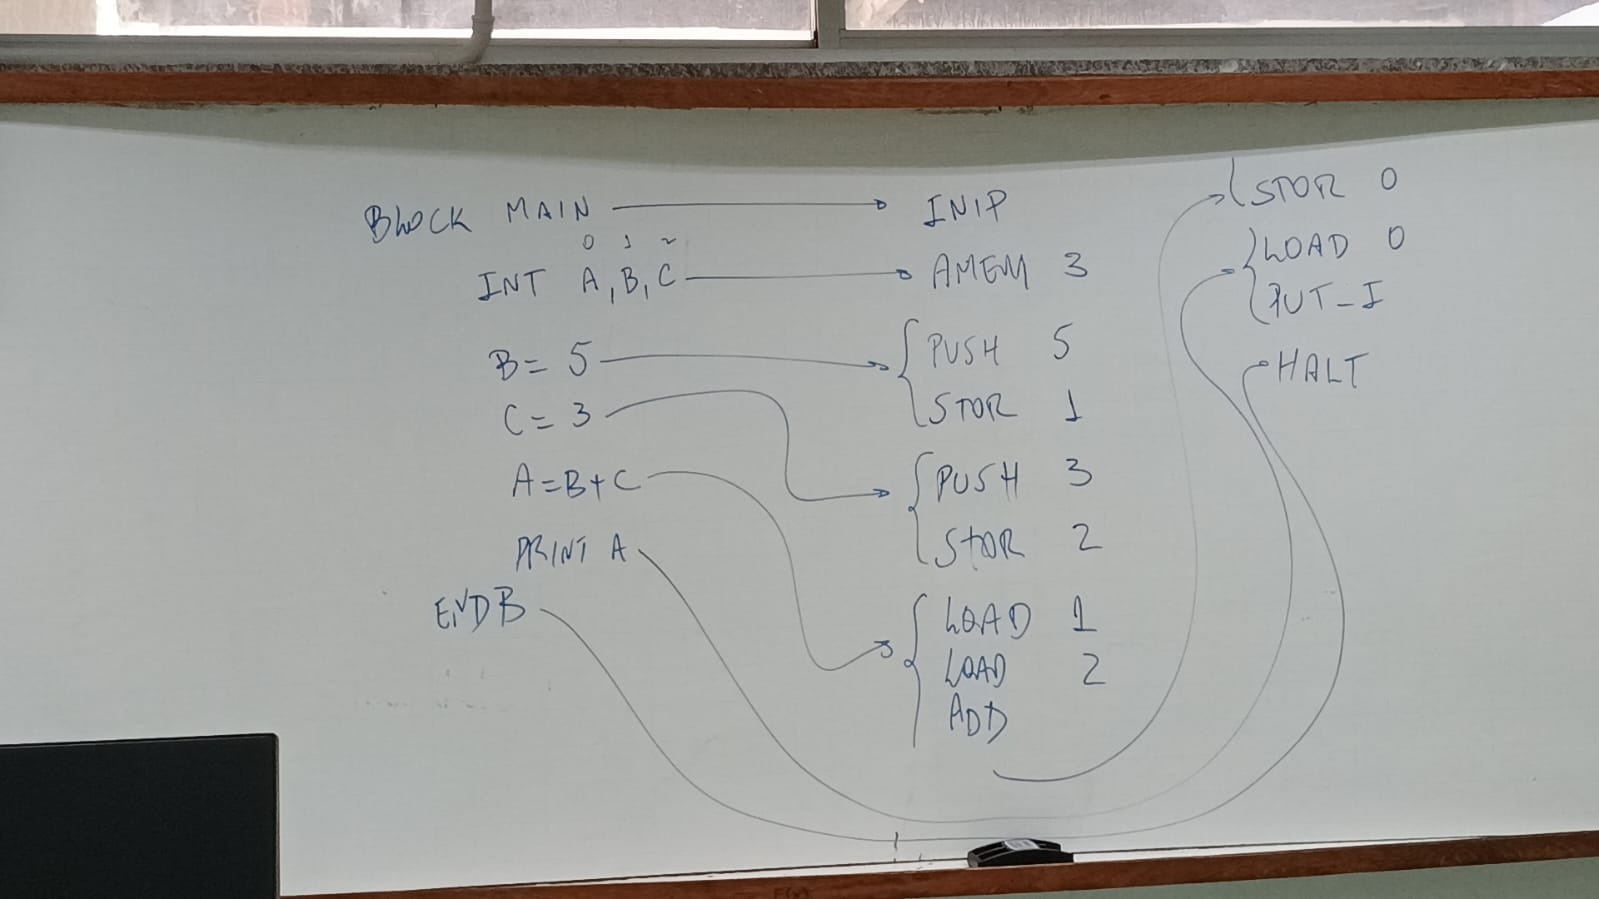 BLOCK MAIN
0 1 2
INT A, B, C
B = 5
C = 3
A = B + C
PRINT A
ENDB
INIP
AMEM 3
PUSH 5
STOR 1
PUSH 3
STOR 2
LOAD 1
LOAD 2
ADD
STOR 0
LOAD 0
PUT_I
HALT